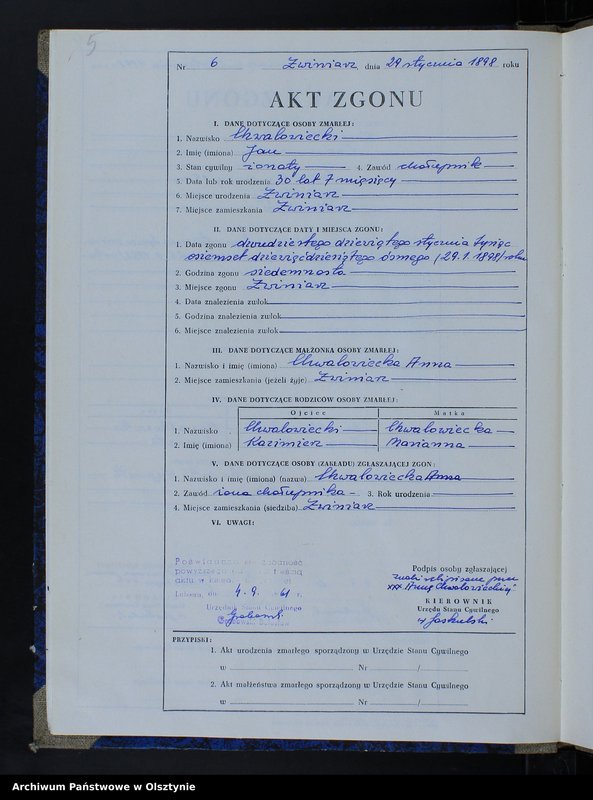 5
Nr 6 Zwiniarz, dnia 29 stycznia 1898 roku
AKT ZGONU
I. DANE DOTYCZĄCE OSOBY ZMARŁEJ:
1. Nazwisko Chwałowiecki
2. Imię (imiona) Jan
3. Stan cywilny żonaty 4. Zawód chałupnik
5. Data lub rok urodzenia 30 lat 7 mięsięcy
6. Miejsce urodzenia Zwiniarz
7. Miejsce zamieszkania Zwiniarz
II. DANE DOTYCZĄCE DATY I MIEJSCA ZGONU:
1. Data zgonu dwudziestego dziewiątego stycznia tysiąc
osiemset dziewięćdziesiątego ósmego (29.1.1898) roku
2. Godzina zgonu siedemnasta
3. Miejsce zgonu Zwiniarz
4. Data znalezienia zwłok
5. Godzina znalezienia zwłok
6. Miejsce znalezienia zwłok
III. DANE DOTYCZĄCE MAŁŻONKA OSOBY ZMARŁEJ:
1. Nazwisko i imię (imiona) Chwałowiecka Anna
2. Miejsce zamieszkania (jeżeli żyje) Zwiniarz
IV. DANE DOTYCZĄCE RODZICÓW OSOBY ZMARŁEJ:
Ojciec Matka
1. Nazwisko Chwałowiecki Chwałowiecka
2. Imię (imiona) Kazimierz Marianna
V. DANE DOTYCZĄCE OSOBY (ZAKŁADU) ZGŁASZAJĄCEJ ZGON:
1. Nazwisko i imię (imiona) (nazwa) Chwałowiecka Anna
2. Zawód żona chałupnika 3. Rok urodzenia
4. Miejsce zamieszkania (siedziba) Zwiniarz
VI. UWAGI:
Poświadcza się zgodność
powyższego z treścią
aktu w
dnia 4. 9. 1961 r.
Urzędu Stanu Cywilnego
Podpis osoby zgłaszającej
znaki ręki pisane przez
xxx Annę Chwałowiecką
KIEROWNIK
Urzędu Stanu Cywilnego
Jaskulski
PRZYPISKI:
1. Akt urodzenia zmarłego sporządzony w Urzędzie Stanu Cywilnego
w Nr /
2. Akt małżeństwa zmarłego sporządzony w Urzędzie Stanu Cywilnego
w Nr /
Archiwum Państwowe w Olsztynie